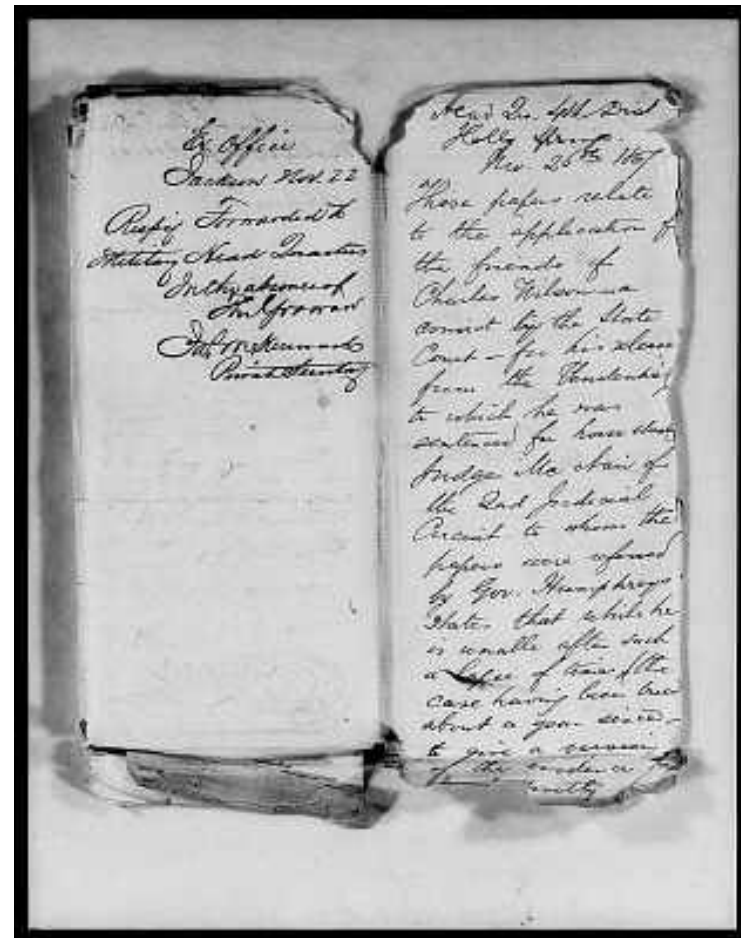 Ex. Office
Jackson Nov. 22
Respy Forwarded to
Military Head Quarters
In the absence of
the Governor
Private Secretary
Head Qrs. Sub Dist
Holly Springs
Nov 26th 1867
These papers relate
to the application of
the friends of
Charles Wilson a
convict by the State
Court - for his release
from the Penitentiary
to which he was
sentenced for horse
Judge of
the 2nd Judicial
Circuit to whom the
papers were referred
by Gov. Humphreys
States that while he
is unable after such
a lapse of time (the
case having been tried
about a year since -
to give a
of the evidence